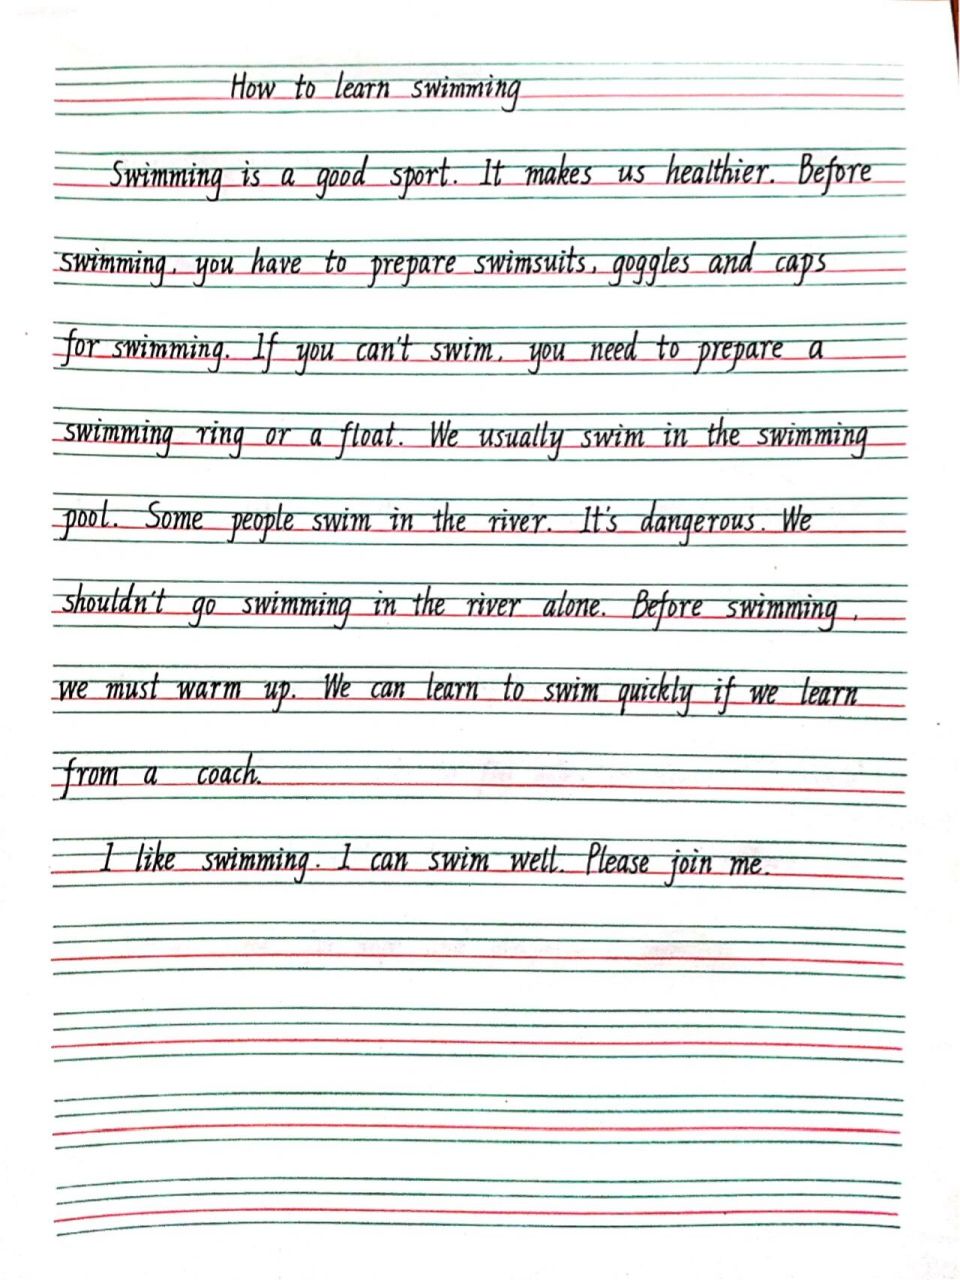 How to learn swimming
Swimming is a good sport. It makes us healthier. Before
swimming, you have to prepare swimsuits, goggles and caps
for swimming. If you can't swim, you need to prepare a
swimming ring or a float. We usually swim in the swimming
pool. Some people swim in the river. It's dangerous. We
shouldn't go swimming in the river alone. Before swimming,
we must warm up. We can learn to swim quickly if we learn
from a coach.
I like swimming. I can swim well. Please join me.